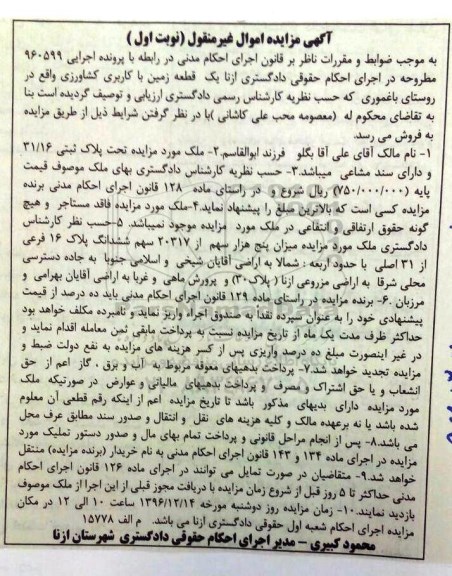 آگهی مزایده اموال غیرمنقول (نوبت اول)
به موجب ضوابط و مقررات ناظر بر قانون اجرای احکام مدنی در رابطه با پرونده اجرایی ۹۶۰۵۹۹
مطروحه در اجرای احکام حقوقی دادگستری ازنا یک قطعه زمین با کاربری کشاورزی واقع در
روستای باغموری که حسب نظریه کارشناس رسمی دادگستری ارزیابی و توصیف گردیده است بنا
به تقاضای محکوم له (معصومه محب علی کاشانی) با در نظر گرفتن شرایط ذیل از طریق مزایده
به فروش می رسد.
۱- نام مالک آقای علی آقا بگلو فرزند ابوالقاسم.۲- ملک مورد مزایده تحت پلاک ثبتی ۳۱/۱۶
و دارای سند مشاعی میباشد.۳- حسب نظریه کارشناس دادگستری بهای ملک موصوف قیمت
پایه (۷۵۰/۰۰۰/۰۰۰) ریال شروع و در راستای ماده ۱۲۸ قانون اجرای احکام مدنی برنده
مزایده کسی است که بالاترین مبلغ را پیشنهاد نماید.۴-ملک مورد مزایده فاقد مستاجر و هیچ
گونه حقوق ارتفاقی و انتفاعی در ملک مورد مزایده موجود نمیباشد. ۵-حسب نظر کارشناس
دادگستری ملک مورد مزایده میزان پنج هزار سهم از ۲۰۳۱۷ سهم ششدانگ پلاک ۱۶ فرعی
از ۳۱ اصلی با حدود اربعه : شمالا به اراضی آقایان شیخی و اسلامی جنوبا به جاده دسترسی
محلی شرقا به اراضی مزروعی ازنا (پلاک۳۰) و پرورش ماهی و غربا به اراضی آقایان بهرامی و
مرزبان .۶- برنده مزایده در راستای ماده ۱۲۹ قانون اجرای احکام مدنی باید ده درصد از قیمت
پیشنهادی خود را به عنوان سپرده نقدا به صندوق اجراء واریز نماید و نامبرده مکلف خواهد بود
حداکثر ظرف مدت یک ماه از تاریخ مزایده نسبت به پرداخت مابقی ثمن معامله اقدام نماید و
در غیر اینصورت مبلغ ده درصد واریزی پس از کسر هزینه های مزایده به نفع دولت ضبط و
مزایده تجدید خواهد شد.۷- پرداخت بدهیهای معوقه مربوط به آب و برق ، گاز اعم از حق
انشعاب و یا حق اشتراک و مصرف و پرداخت بدهیهای مالیاتی و عوارض در صورتیکه ملک
مورد مزایده دارای بدیهای مذکور باشد تا تاریخ مزایده اعم از اینکه رقم قطعی آن معلوم
شده باشد یا نه برعهده مالک و کلیه هزینه های نقل و انتقال و صدور سند مطابق عرف محل
می باشد.۸- پس از انجام مراحل قانونی و پرداخت تمام بهای مال و صدور دستور تملیک مورد
مزایده در اجرای ماده ۱۳۴ و ۱۴۳ قانون اجرای احکام مدنی به نام خریدار (برنده مزایده) منتقل
خواهد شد.۹- متقاضیان در صورت تمایل می توانند در اجرای ماده ۱۲۶ قانون اجرای احکام
مدنی حداکثر تا ۵ روز قبل از شروع زمان مزایده با دریافت مجوز قبلی از این اجرا از ملک موصوف
بازدید نمایند.۱۰- زمان مزایده روز دوشنبه مورخه ۱۳۹۶/۱۲/۱۴ ساعت ۱۰ الی ۱۲ در مکان
مزایده اجرای احکام شعبه اول حقوقی دادگستری ازنا می باشد. م الف ۱۵۷۷۸
محمود کبیری – مدیر اجرای احکام حقوقی دادگستری شهرستان ازنا